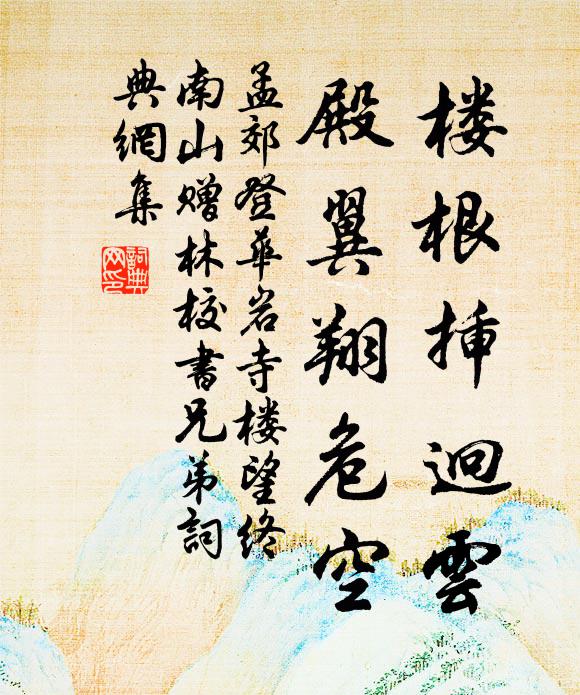 楼根插迥雲
殿翼翔危空
孟郊登华岩寺楼望终
南山赠林校书兄弟詞
典網集
詞典
网印